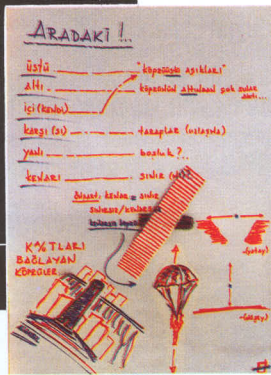 ARADAKİ !..
ÜSTÜ "KÖPRÜÜSTÜ AŞIKLARI"
ALTI KÖPRÜNÜN ALTINDAN ÇOK SULAR
İÇİ (KENDİ)
KARŞI (SI) TARAFLAR (UZLAŞMA)
YANI BOŞLUK ?..
KENARI SINIR
KENAR = SINIR
SINIRSIZ/KENARSIZ
K%TLARI
BAĞLAYAN
KÖPRÜLER
(YATAY)
(DÜŞEY)